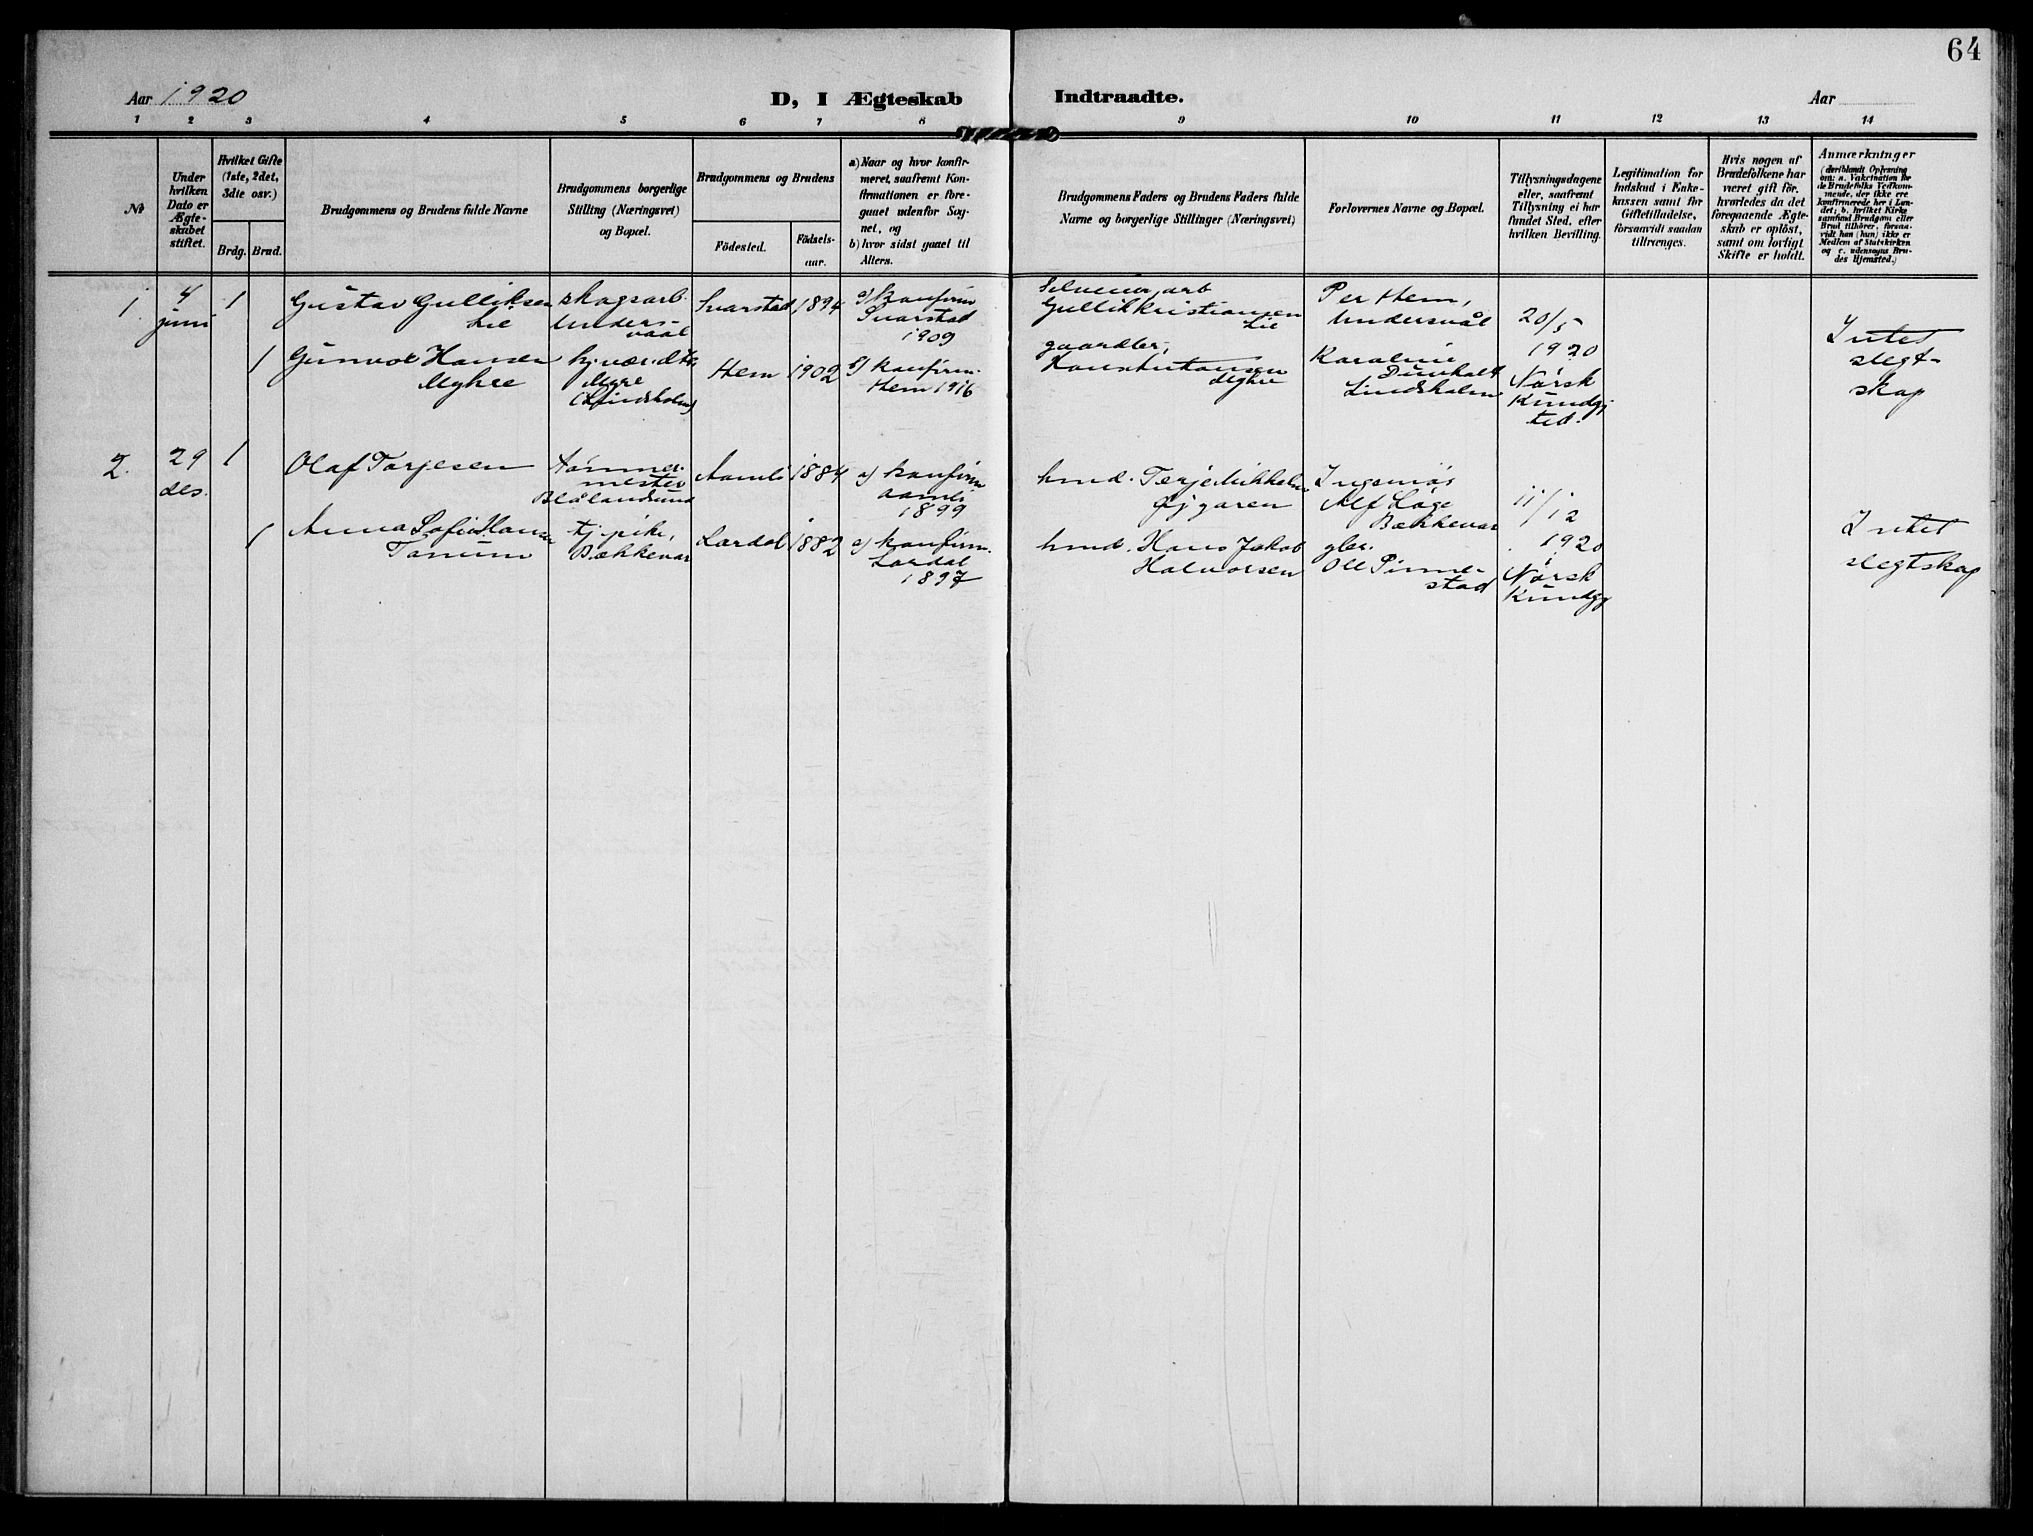 64
Aar 1920
D, I Ægteskab
Indtraadte.
Aar
1 2 3 4 5 6 7 8 9 10 11 12 13 14
№
Under
hvilken
Dato er
Ægte-
skabet
stiftet.
Hvilket Gifte
(1ste, 2det,
3die osv.)
Brdg. Brud.
Brudgommens og Brudens fulde Navne
Brudgommens borgerlige
Stilling (Næringsvei)
og Bopæl.
Brudgommens og Brudens
Födested.
Födsels-
aar.
a) Naar og hvor konfir-
meret, saafremt Kon-
firmationen er fore-
gaaet udenfor Sog-
net, og
b) hvor sidst gaaet til
Alters.
Brudgommens Faders og Brudens Faders fulde
Navne og borgerlige Stillinger (Næringsvei)
Forlovernes Navne og Bopæl.
Tillysningsdagene
eller, saafremt
Tillysning ei har
fundet Sted, efter
hvilken Bevilling.
Legitimation for
Indskud i Enke-
kassen samt for
Giftetilladelse,
forsaavidt saadan
tiltrenges.
Hvis nogen af
Brudefolkene har
været gift för,
hvorledes da det
foregaaende Ægte-
skab er oplöst,
samt om lovligt
Skifte er holdt.
Anmærkninger
(deriblandt Oplysning
om: a. Vakcination for
de Brudefolks Vedkom-
mende, der ikke ere
konfirmerede her i Lan-
det; b. hvilket Kirke-
samfund Brudgom eller
Brud tilhörer, forsaa-
vidt han (hun) ikke er
Medlem af Statskirken
og c. udensogns Bru-
des Hjemsted.)
1.
4
juni
1
Gustav Gulliksen
Lie
skogsarb.
Unders-
vaal
Svarstad
1894
a) konfirm
Svarstad
1909
arb
Gullik Kristiansen
Lie
Per Hem,
Undersvål
20/5
1920
Norsk
Kundgj
ted.
Intet
slegt-
skap
1
Gunvor Hansen
Myhre
hj. vær. dtr.
Myre
(Lindsholm)
Hem
1902
a) konfirm.
Hem 1916
gaardbr.
Hans Antonsen
Myhre
Karoline
Lindsholm
2.
29
des.
1
Olaf Torjesen
Tömmer-
mester
Blålandsund
Aamli
1884
a) konfirm
aamli
1899
kmd. Terje Mikkelsen
Öygaren
Alf Låge
Bækkevar
11/12
1920
Norsk
Kundgj
Intet
slegtskap
1
Anna Sofie Hansen
Tanum
tj. pike,
Bækkevar
Lardal
1882
a) konfirm.
Lardal
1897
kmd. Hans Jakob
Halvorsen
gbr.
Ole Pinne-
stad